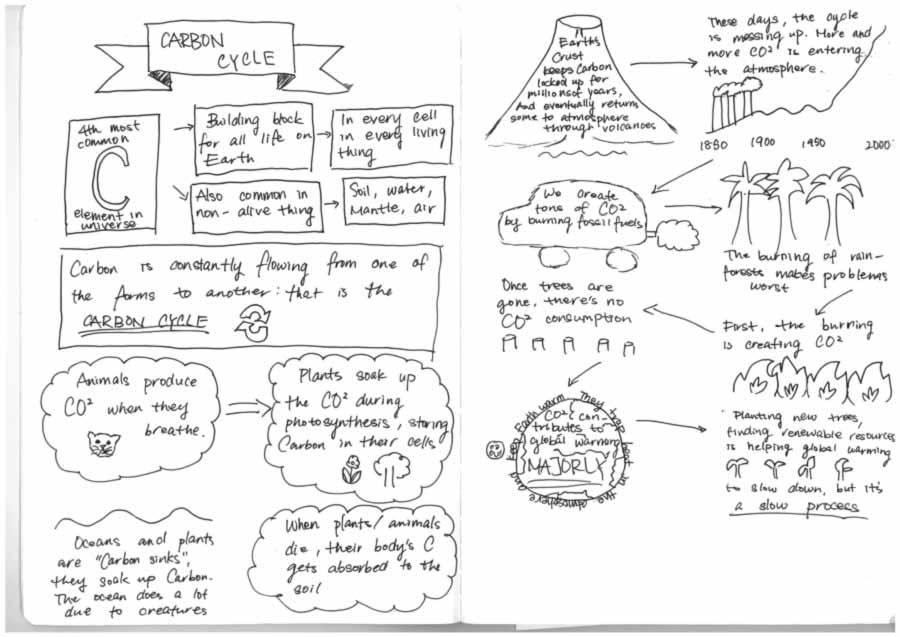 CARBON
CYCLE
4th most
common
C
element in
universe
Building block
for all life on
Earth
In every cell
in every living
thing
Also common in
non-alive thing
Soil, water,
Mantle, air
Carbon is constantly flowing from one of
the forms to another: that is the
CARBON CYCLE
Animals produce
CO² when they
breathe.
Plants soak up
the CO² during
photosynthesis, storing
Carbon in their cells
Oceans and plants
are "Carbon sinks",
they soak up Carbon.
The ocean does a lot
due to creatures
When plants/animals
die, their body's C
gets absorbed to the
soil
Earth's
Crust
keeps Carbon
locked up for
millions of years,
And eventually return
some to atmosphere
through volcanoes
These days, the cycle
is messing up. More and
more CO² is entering
the atmosphere.
1880 1900 1950 2000
We create
tons of CO²
by burning fossil fuels
The burning of rain-
forests makes problems
worst
First, the burning
is creating CO²
Once trees are
gone, there's no
CO² consumption
CO² con-
tributes to
global warming
MAJORLY
They trap heat in the atmosphere and keep Earth warm
Planting new trees,
finding renewable resources
is helping global warming
to slow down, but it's
a slow process